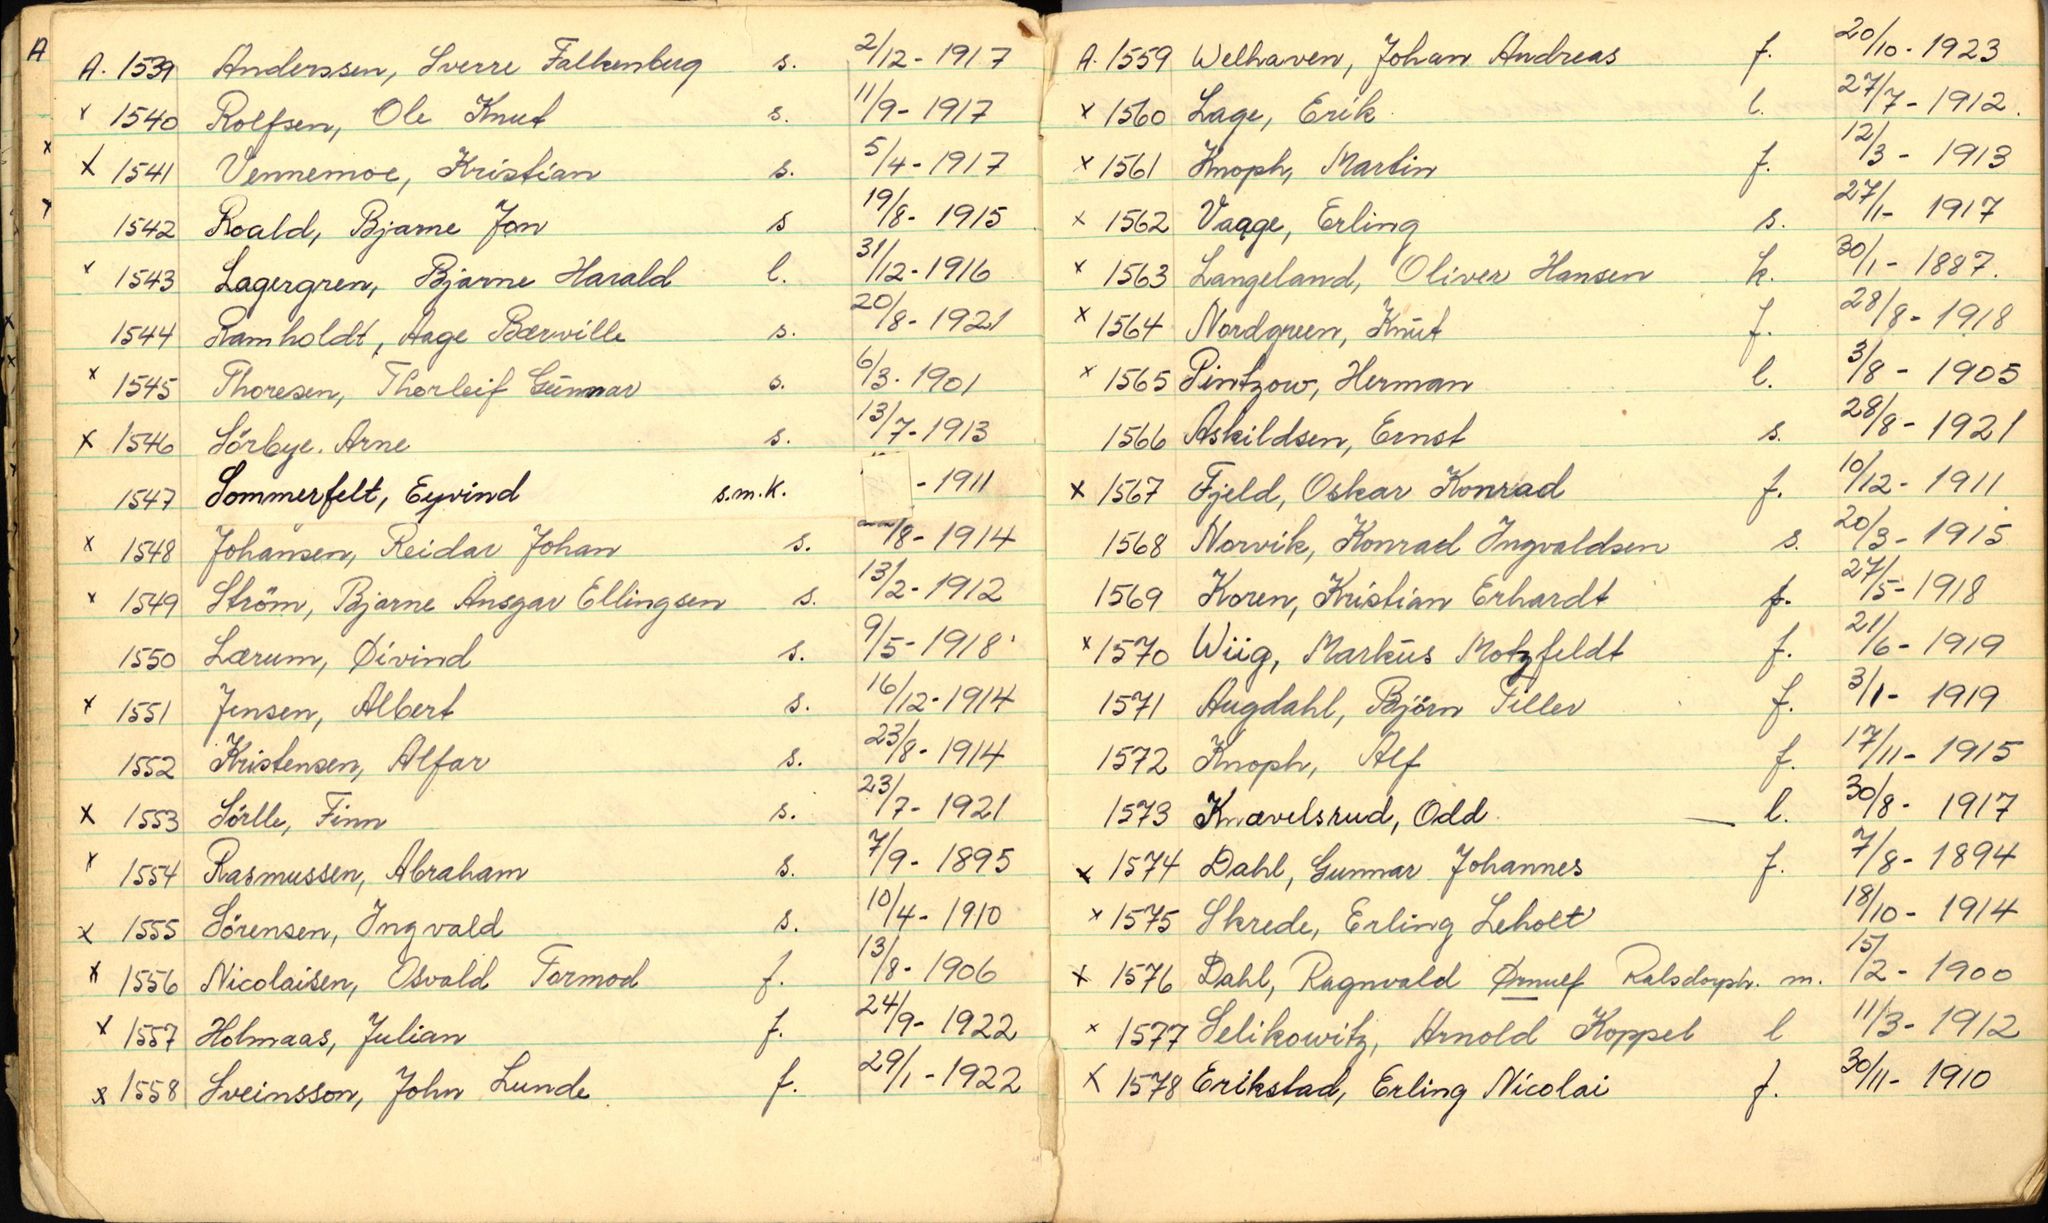 A
A. 1539 Anderssen, Sverre Falkenberg s. 2/12 - 1917
x 1540 Rolfsen, Ole Knut s. 11/9 - 1917
x 1541 Vennemoe, Kristian s. 5/4 - 1917
1542 Roald, Bjarne Jon s 19/8 - 1915
x 1543 Lagergren, Bjarne Harald l. 31/12 - 1916
1544 Ramholdt, Aage Bærville s. 20/8 - 1921
x 1545 Thoresen, Thorleif Gunnar s. 6/3 - 1901
x 1546 Sörbye. Arne s. 13/7 - 1913
1547 Sommerfelt, Eyvind s.m.k. - 1911
x 1548 Johansen, Reidar Johan s. /8 - 1914
x 1549 Ström, Bjarne Ansgar Ellingsen s. 13/2 - 1912
1550 Lærum, Øivind s. 9/5 - 1918
x 1551 Jensen, Albert s. 16/12 - 1914
1552 Kristensen, Alfar s. 23/8 - 1914
x 1553 Sörlle, Finn s. 23/7 - 1921
x 1554 Rasmussen, Abraham s. 7/9 - 1895
x 1555 Sörensen, Ingvald s. 10/4 - 1910
x 1556 Nicolaisen, Osvald Tormod f. 13/8 - 1906
x 1557 Holmaas, Julian f. 24/9 - 1922
x 1558 Sveinsson, John Lunde f. 29/1 - 1922
A. 1559 Welhaven, Johan Andreas f. 20/10 - 1923
x 1560 Lage, Erik l. 27/7 - 1912.
x 1561 Knoph, Martin f. 12/3 - 1913
x 1562 Vaage, Erling s. 27/1 - 1917
x 1563 Langeland, Oliver Hansen k. 30/1 - 1887.
x 1564 Nordgreen, Knut f. 28/8 - 1918
x 1565 Pintzow, Herman l. 3/8 - 1905
1566 Askildsen, Ernst s. 28/8 - 1921
x 1567 Fjeld, Oskar Konrad f. 10/12 - 1911
1568 Norvik, Konrad Ingvaldsen s. 20/3 - 1915
1569 Koren, Kristian Erhardt f. 27/5 - 1918
x 1570 Wiig, Markus Motzfeldt f. 21/6 - 1919
1571 Augdahl, Björn Tiller f. 3/1 - 1919
1572 Knoph, Alf f. 17/11 - 1915
1573 Knævelsrud, Odd l. 30/8 - 1917
x 1574 Dahl, Gunnar Johannes f. 7/8 - 1894
x 1575 Skrede, Erling Leholt 18/10 - 1914
x 1576 Dahl, Ragnvald Ørnulf Ralsdorph. m. 15/2 - 1900
x 1577 Selikowitz, Arnold Koppel l 11/3 - 1912
x 1578 Erikstad, Erling Nicolai f. 30/11 - 1910